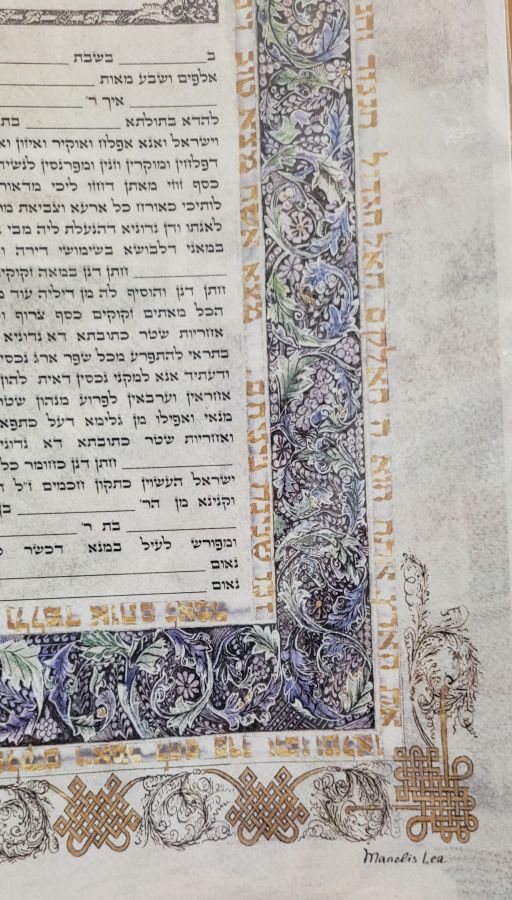 ב ________ בשבת ________
אלפים ושבע מאות ________
________ איך ר' ________
להדא בתולתא ________ בת
וישראל ואנא אפלח ואוקיר ואיזון
דפלחין ומוקרין וזנין ומפרנסין לנשי
כסף זוזי מאתן דחזו ליכי מדאור
לותיכי כאורח כל ארעא וצביאת מר
לאנתו ודן נדוניא דהנעלת ליה מבי
במאני דלבושא בשימושי דירה
________ חתן דנן במאה זקוקי
חתן דנן והוסיף לה מן דיליה עוד
הכל מאתים זקוקים כסף צרוף
אחריות שטר כתובתא דא נדוניא
בתראי להתפרע מכל שפר ארג נכסי
ודעתיד אנא למקני נכסין דאית להון
אחראין וערבאין לפרוע מנהון שטר
מנאי ואפילו מן גלימא דעל כתפא
ואחריות שטר כתובתא דא נדוני
________ חתן דנן כחומר כל
ישראל העשוין כתקון חכמים ז"ל
וקנינא מן הר' ________ בן
________ בת ר' ________
ומפורש לעיל במנא דכשר
נאום ________
נאום ________
מצא אשה מצא טוב
זכו שכינה ביניהם
את הארץ אתה הוא ה האלקים האל הגדול הגבור
פרו ורבו ומלאו
Manolis Lea